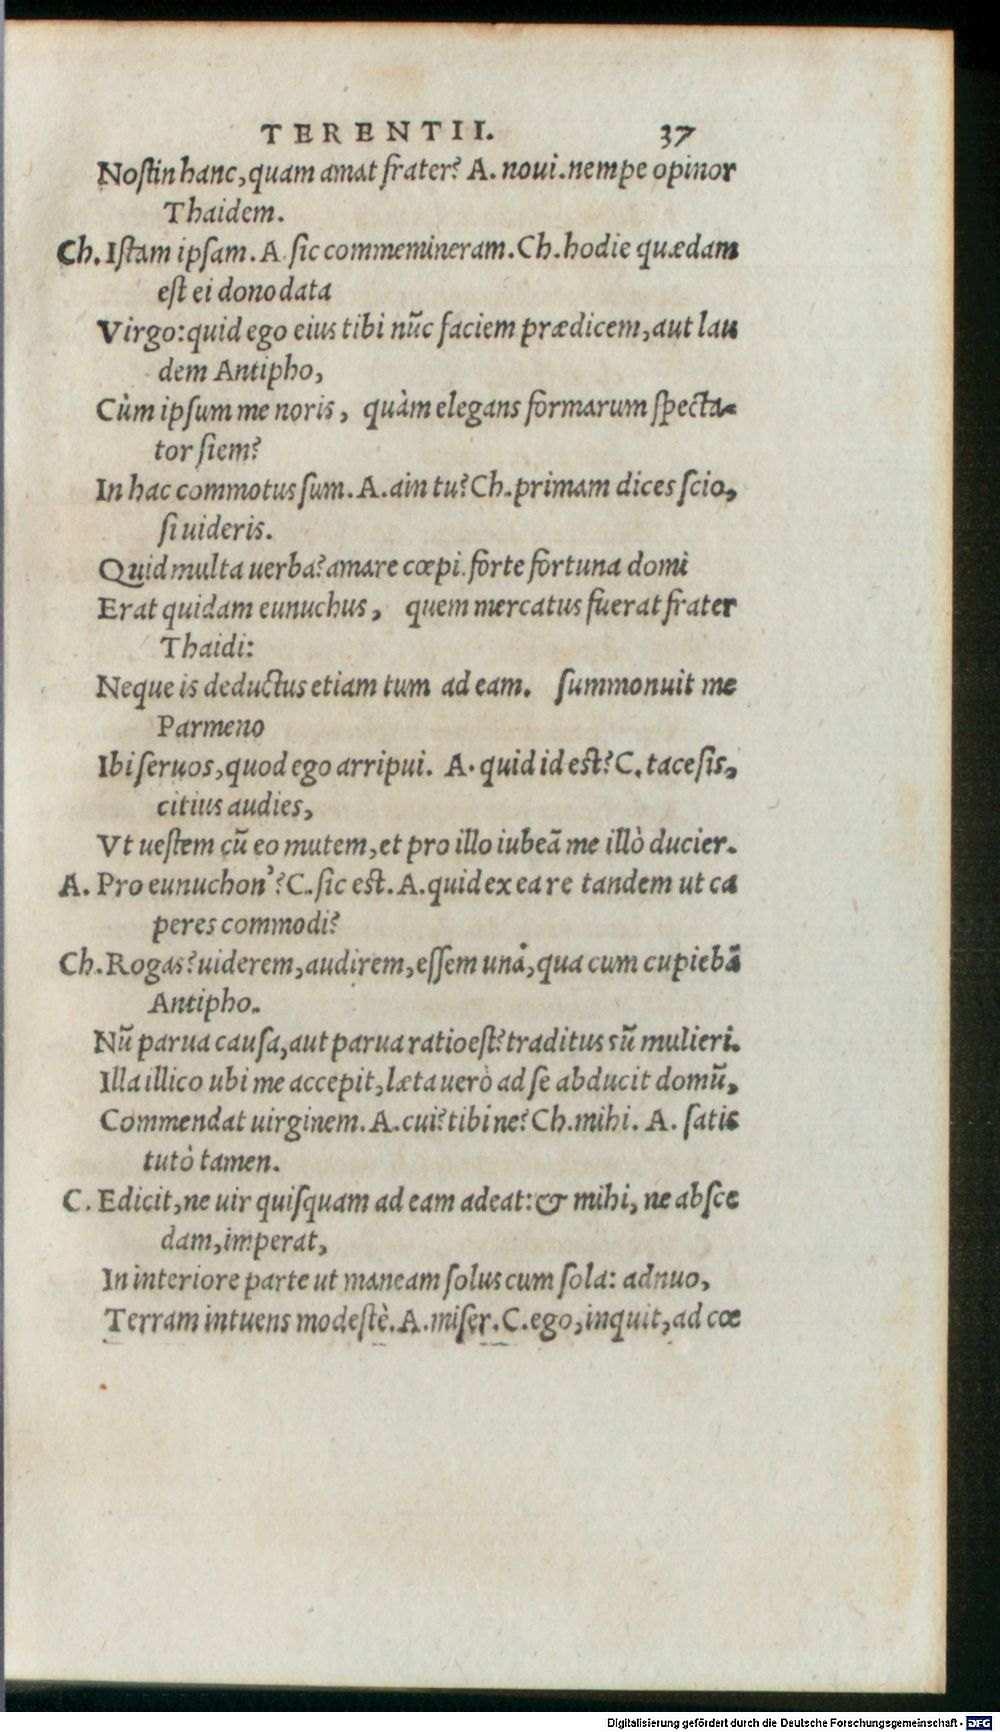 TERENTII. 37
Noſtin hanc, quam amat frater? A. noui. nempe opinor
Thaidem.
Ch. Iſtam ipſam. A. ſic commemineram. Ch. hodie quædam
eſt ei dono data
Virgo: quid ego eius tibi nũc faciem prædicem, aut lau
dem Antipho,
Cùm ipſum me noris, quàm elegans formarum ſpecta-
tor ſiem?
In hac commotus ſum. A. ain tu? Ch. primam dices ſcio,
ſi uideris.
Quid multa uerba? amare cœpi. forte fortuna domi
Erat quidam eunuchus, quem mercatus fuerat frater
Thaidi:
Neque is deductus etiam tum ad eam. ſummonuit me
Parmeno
Ibi ſeruos, quod ego arripui. A. quid id eſt? C. tace ſis,
citius audies,
Vt ueſtem cũ eo mutem, et pro illo iubeã me illò ducier.
A. Pro eunuchon'? C. ſic eſt. A. quid ex ea re tandem ut ca
peres commodi?
Ch. Rogas? uiderem, audirem, eſſem unà, qua cum cupiebã
Antipho.
Nũ parua cauſa, aut parua ratio eſt? traditus sũ mulieri.
Illa illico ubi me accepit, læta uerò ad ſe abducit domũ,
Commendat uirginem. A. cui? tibi ne? Ch. mihi. A. ſatis
tutò tamen.
C. Edicit, ne uir quiſquam ad eam adeat: & mihi, ne abſce
dam, imperat,
In interiore parte ut maneam ſolus cum ſola: adnuo,
Terram intuens modeſtè. A. miſer. C. ego, inquit, ad cœ
Digitalisierung gefördert durch die Deutsche Forschungsgemeinschaft - DFG